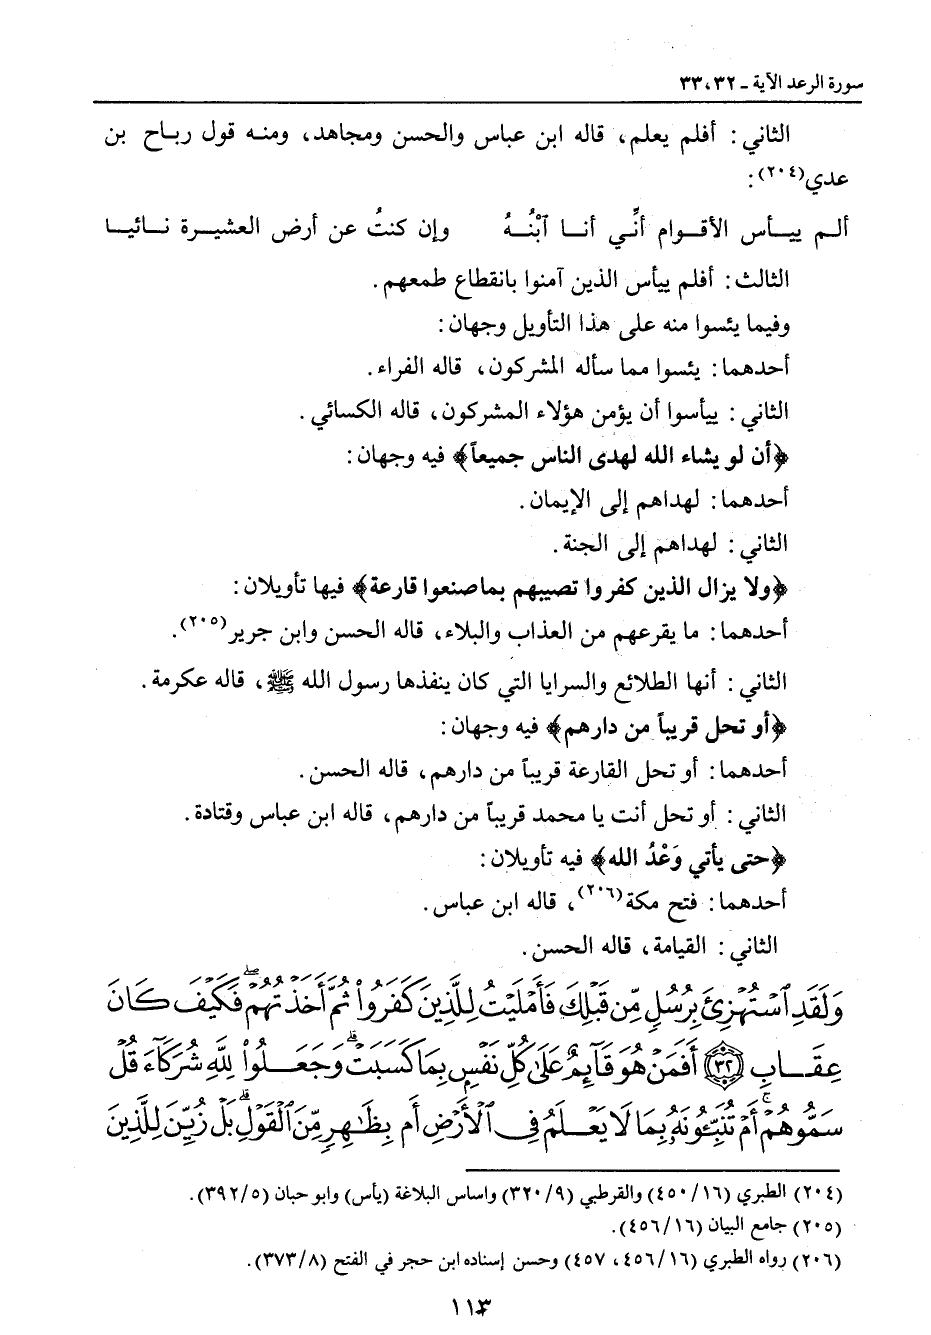 سورة الرعد الآية ـ ٣٢، ٣٣
الثاني: أفلم يعلم، قاله ابن عباس والحسن ومجاهد، ومنه قول رباح بن
عدي(٢٠٤):
ألم ييـأس الأقـوام أنِّـي أنـا ٱبْنُـهُ وإن كنتُ عن أرض العشيـرة نـائيـا
الثالث: أفلم ييأس الذين آمنوا بانقطاع طمعهم.
وفيما يئسوا منه على هذا التأويل وجهان:
أحدهما: يئسوا مما سأله المشركون، قاله الفراء.
الثاني: ييأسوا أن يؤمن هؤلاء المشركون، قاله الكسائي.
﴿أن لو يشاء الله لهدى الناس جميعاً﴾ فيه وجهان:
أحدهما: لهداهم إلى الإيمان.
الثاني: لهداهم إلى الجنة.
﴿ولا يزال الذين كفروا تصيبهم بماصنعوا قارعة﴾ فيها تأويلان:
أحدهما: ما يقرعهم من العذاب والبلاء، قاله الحسن وابن جرير(٢٠٥).
الثاني: أنها الطلائع والسرايا التي كان ينفذها رسول الله ﷺ، قاله عكرمة.
﴿أو تحل قريباً من دارهم﴾ فيه وجهان:
أحدهما: أو تحل القارعة قريباً من دارهم، قاله الحسن.
الثاني: أو تحل أنت يا محمد قريباً من دارهم، قاله ابن عباس وقتادة.
﴿حتى يأتي وَعْدُ الله﴾ فيه تأويلان:
أحدهما: فتح مكة(٢٠٦)، قاله ابن عباس.
الثاني: القيامة، قاله الحسن.
وَلَقَدِ ٱسْتُهْزِئَ بِرُسُلٍ مِّن قَبْلِكَ فَأَمْلَيْتُ لِلَّذِينَ كَفَرُواْ ثُمَّ أَخَذْتُهُمْ ۖ فَكَيْفَ كَانَ
عِقَابِ ٣٢ أَفَمَنْ هُوَ قَآئِمٌ عَلَىٰ كُلِّ نَفْسٍۭ بِمَا كَسَبَتْ ۗ وَجَعَلُواْ لِلَّهِ شُرَكَآءَ قُلْ
سَمُّوهُمْ ۚ أَمْ تُنَبِّـُٔونَهُۥ بِمَا لَا يَعْلَمُ فِى ٱلْأَرْضِ أَم بِظَٰهِرٍ مِّنَ ٱلْقَوْلِ ۗ بَلْ زُيِّنَ لِلَّذِينَ
(٢٠٤) الطبري (٤٥٠/١٦) والقرطبي (٣٢٠/٩) واساس البلاغة (يأس) وابو حبان (٣٩٢/٥).
(٢٠٥) جامع البيان (٤٥٦/١٦).
(٢٠٦) رواه الطبري (٤٥٦/١٦، ٤٥٧) وحسن إسناده ابن حجر في الفتح (٣٧٣/٨).
١١٣